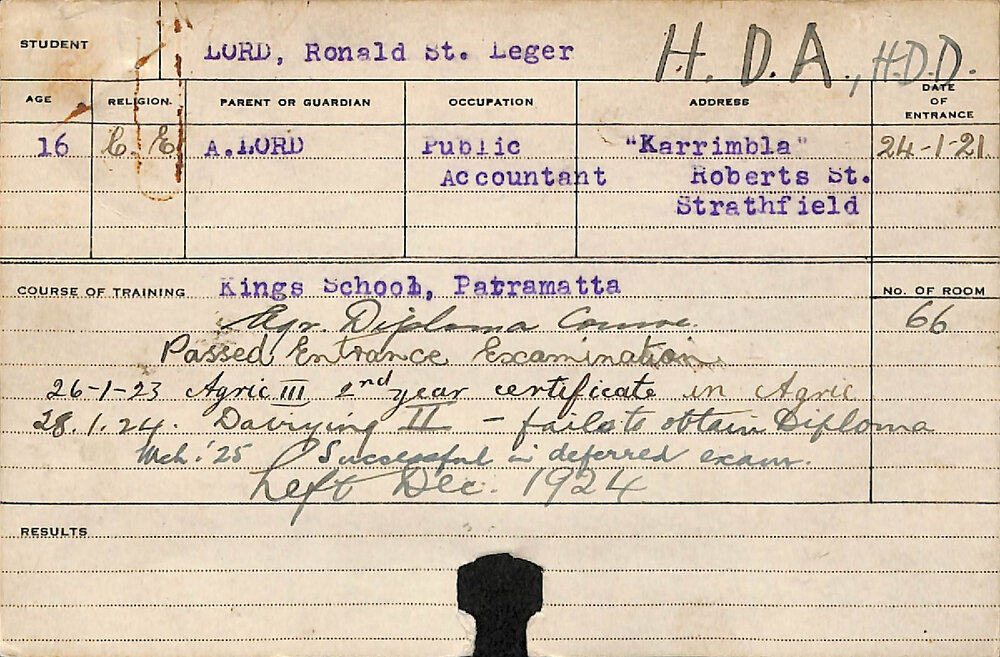 STUDENT LORD, Ronald St. Leger H.D.A., H.D.D.
AGE RELIGION. PARENT OR GUARDIAN OCCUPATION ADDRESS DATE OF ENTRANCE
16 C. E. A.LORD Public "Karrimbla" 24-1-21.
Accountant Roberts St.
Strathfield
COURSE OF TRAINING Kings School, Parramatta No. OF ROOM
Agr. Diploma Course. 66
Passed Entrance Examination.
26-1-23 Agric III 2nd year certificate in Agric
28.1.24. Dairying II - fails to obtain Diploma
Mch. '25 Successful in deferred exam.
Left Dec. 1924
RESULTS